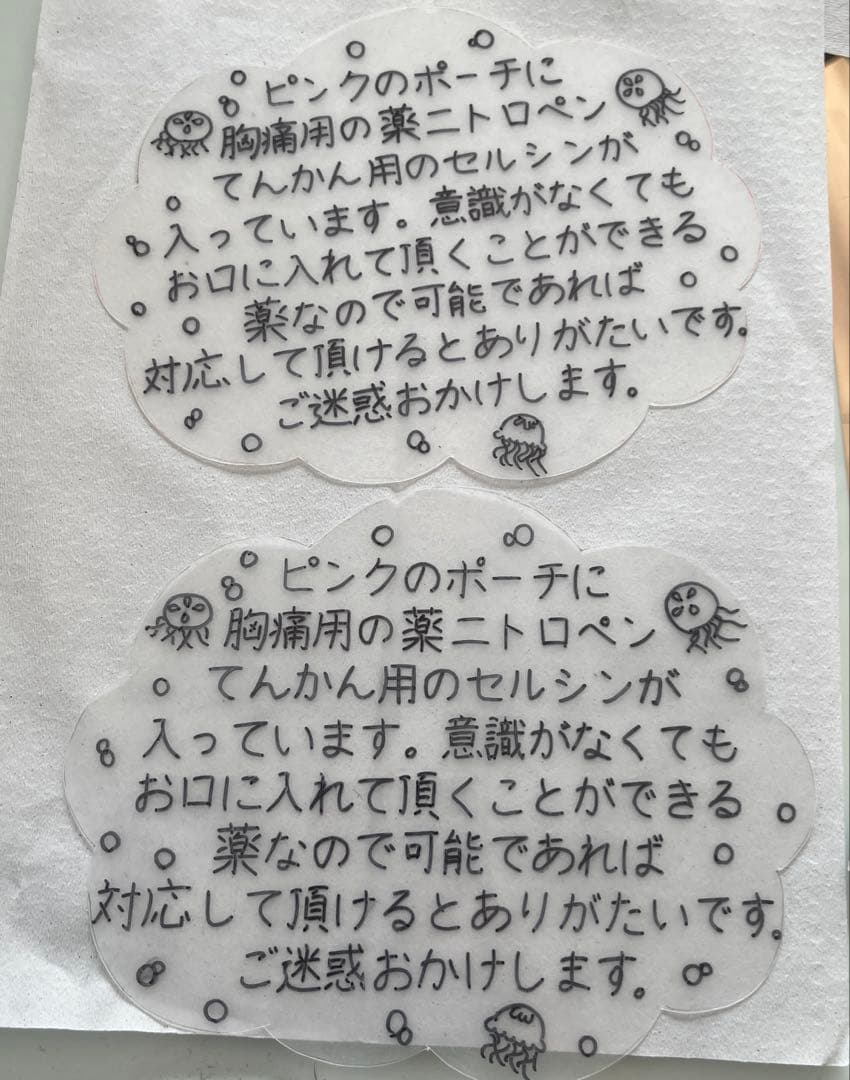 ピンクのポーチに
胸痛用の薬ニトロペン
てんかん用のセルシンが
入っています。意識がなくても
お口に入れて頂くことができる
薬なので可能であれば
対応して頂けるとありがたいです。
ご迷惑おかけします。
ピンクのポーチに
胸痛用の薬ニトロペン
てんかん用のセルシンが
入っています。意識がなくても
お口に入れて頂くことができる
薬なので可能であれば
対応して頂けるとありがたいです。
ご迷惑おかけします。